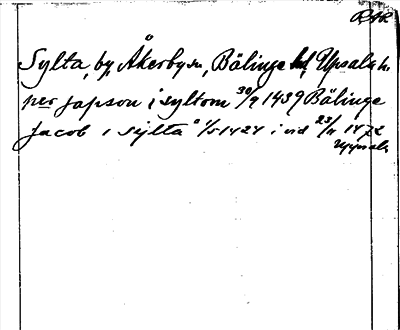 RAR
Sylta, by, Åkerby sn, Bälinge hd, Upsala l.
per Japson i syltom 30/9 1439 Bälinge
Jacob i sylta 1/5 1424 i vid 23/11 1472
Uppsala